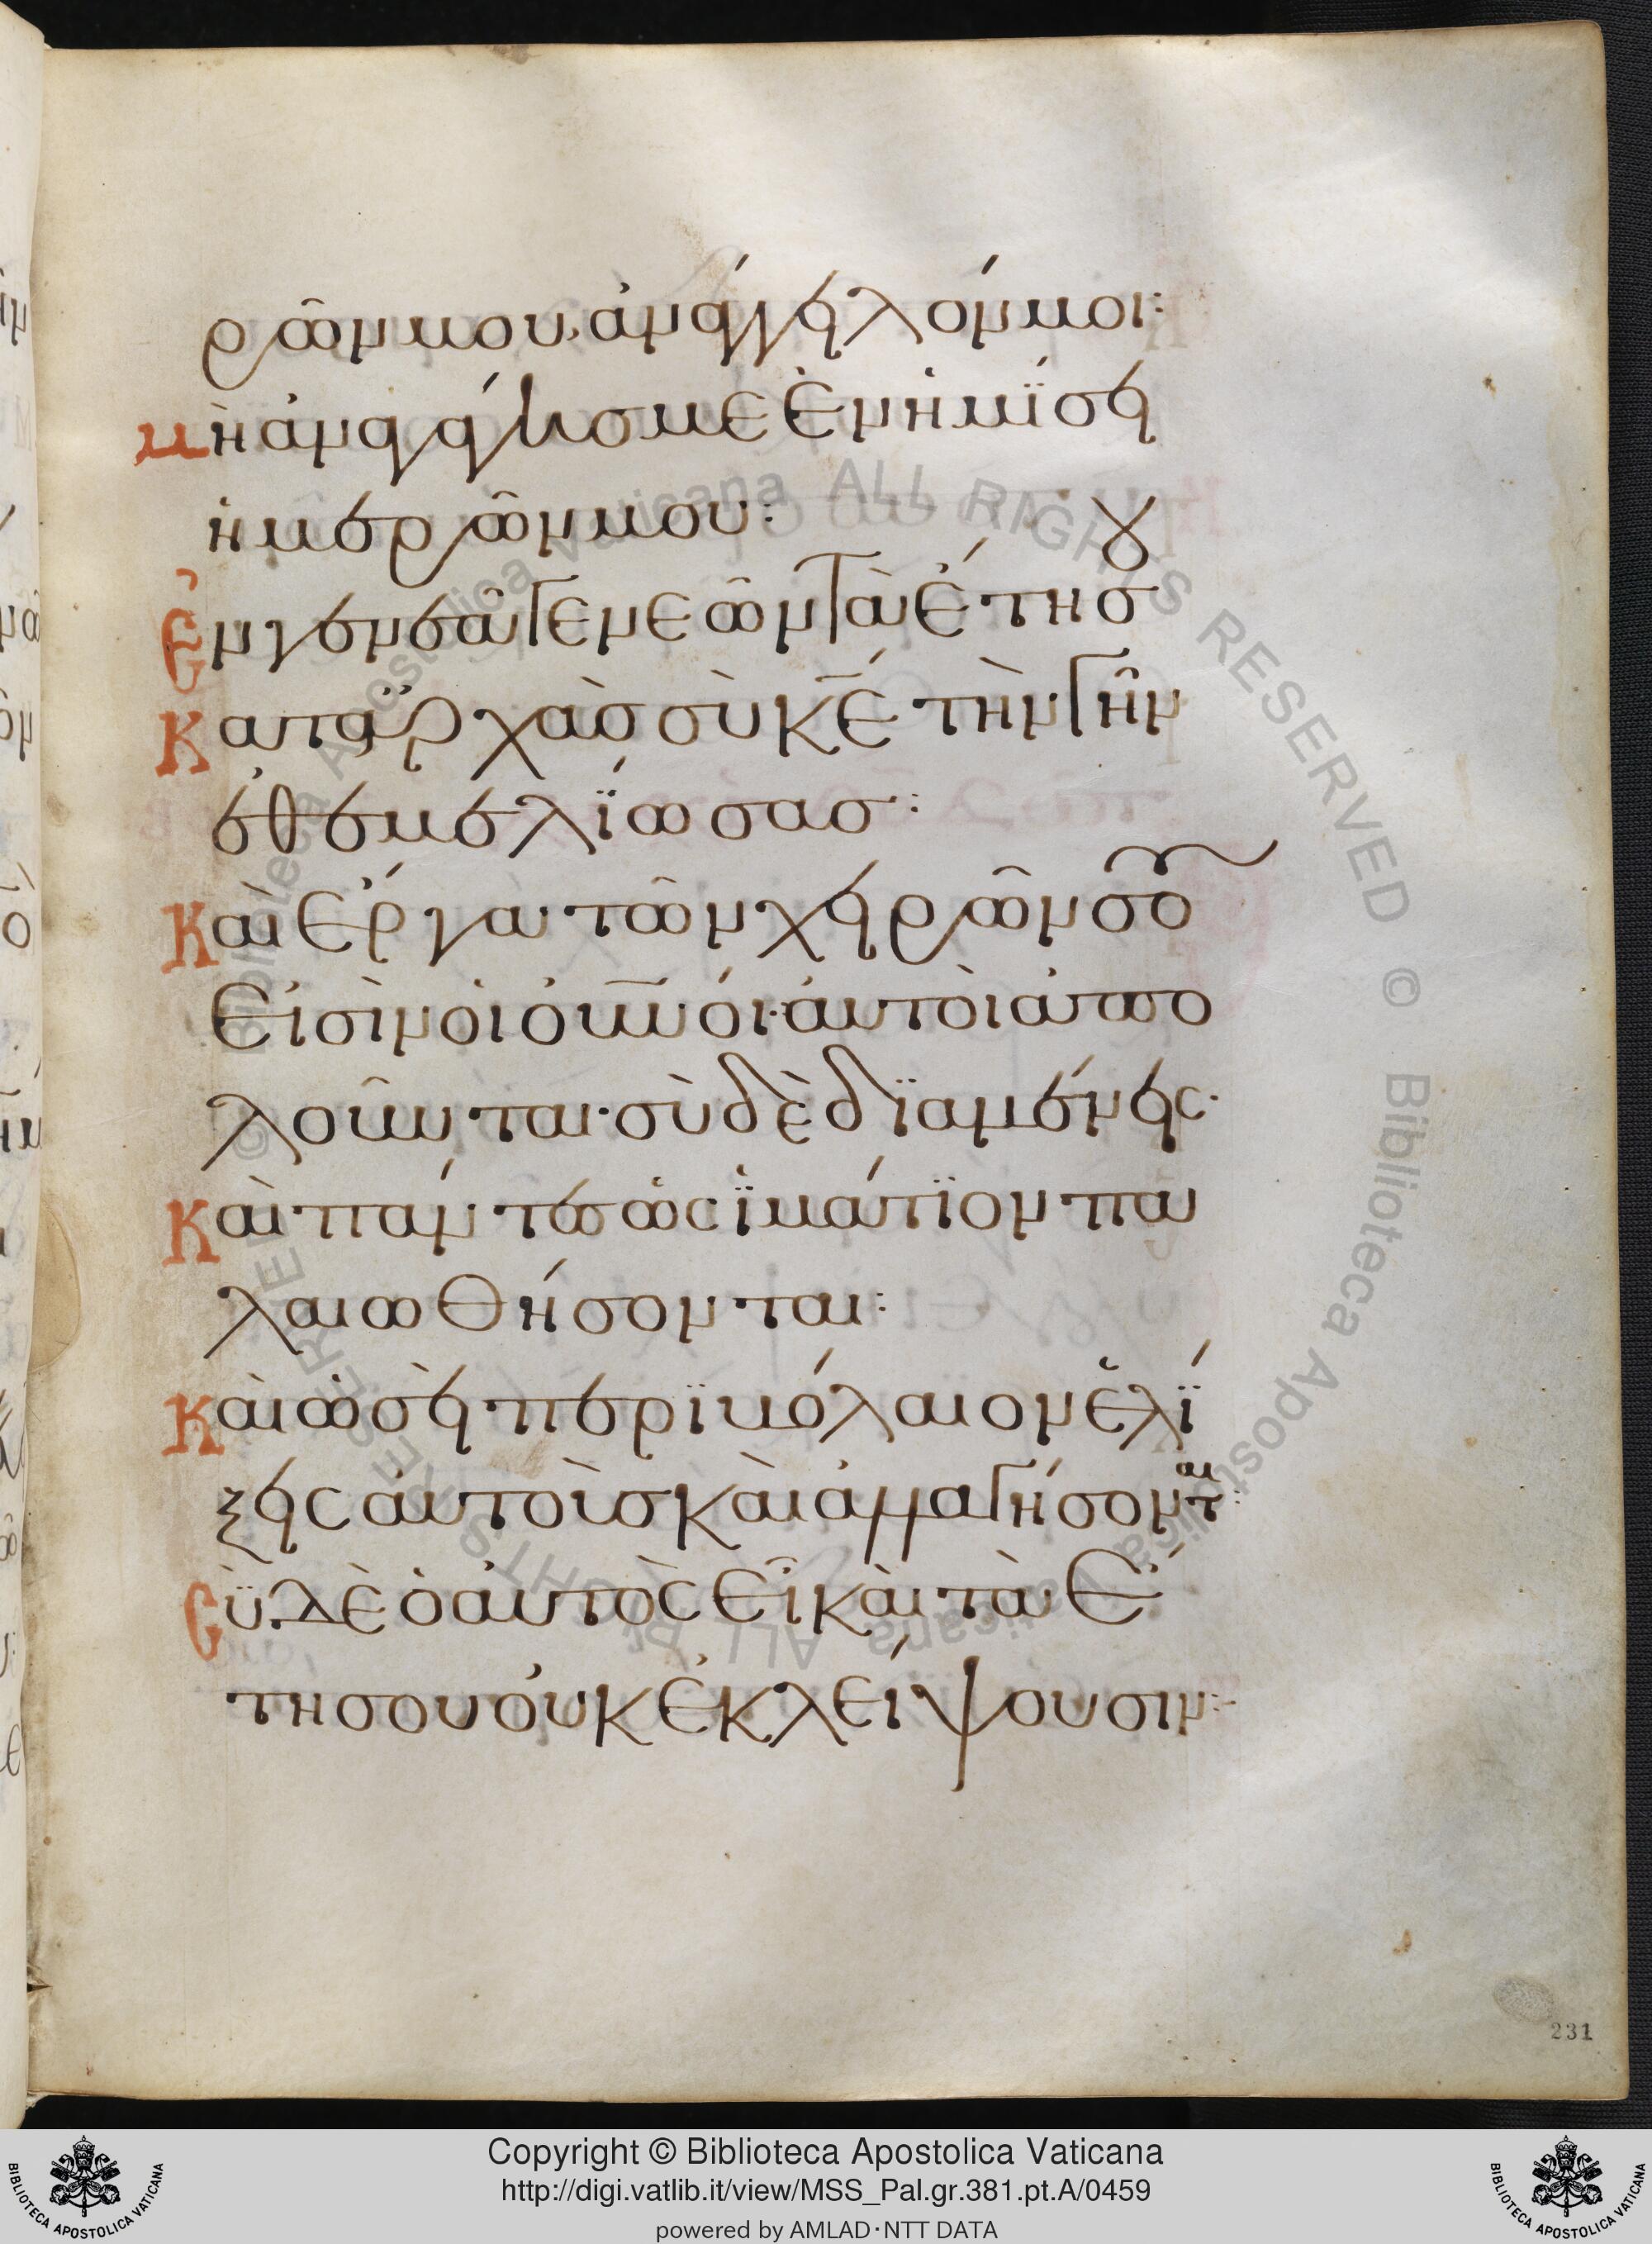 ρῶν μου, ἀνάγγειλόν μοι:
μὴ ἀναγάγῃς με ἐν ἡμίσει
ἡμερῶν μου:
ἐν γενεᾷ γενεῶν τὰ ἔτη σου
Κατ' ἀρχὰς σὺ κε τὴν γῆν
ἐθεμελίωσας:
Καὶ ἔργα τῶν χειρῶν σου
εἰσὶν οἱ οὐνοί· αὐτοὶ ἀπο
λοῦνται· σὺ δὲ διαμένεις·
Καὶ πάντες ὡς ἱμάτιον πα
λαιωθήσονται:
Καὶ ὡσεὶ περιβόλαιον ἑλί
ξεις αὐτοὺς καὶ ἀλλαγήσονται:
Σὺ δὲ ὁ αὐτὸς εἶ καὶ τὰ ἔ
τη σου οὐκ ἐκλείψουσιν:
231
Copyright © Biblioteca Apostolica Vaticana
http://digi.vatlib.it/view/MSS_Pal.gr.381.pt.A/0459
powered by AMLAD·NTT DATA
BIBLIOTECA APOSTOLICA VATICANA
BIBLIOTECA APOSTOLICA VATICANA
© Biblioteca Apostolica Vaticana ALL RIGHTS RESERVED
© Biblioteca Apostolica Vaticana ALL RIGHTS RESERVED